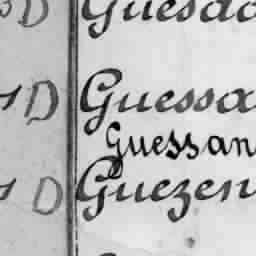 D Guesdo
D Guessa
Guessan
D Guezen